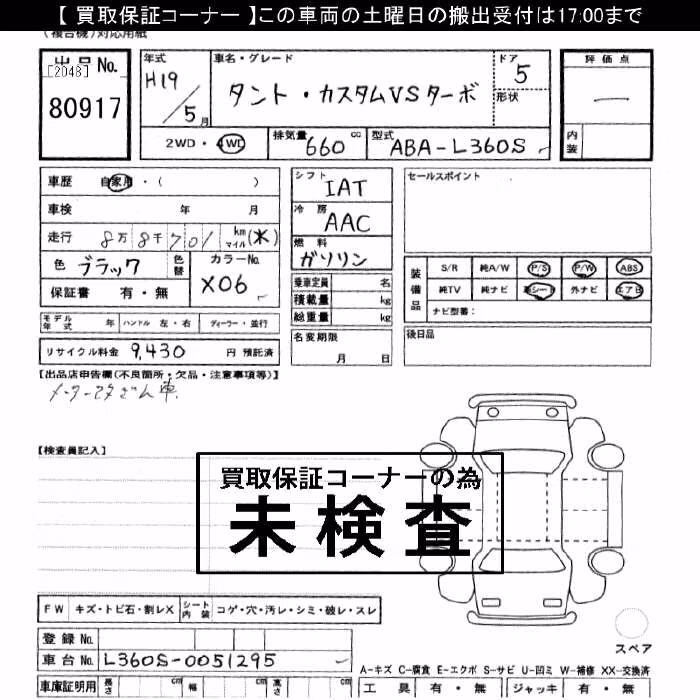 【 買取保証コーナー 】この車両の土曜日の搬出受付は17:00まで
(複合機)対応用紙
出品No.
[2048]
80917
年式
H19/5月
車名・グレード
タント・カスタムVSターボ
ドア
5
形状
評価点
一
内装
2WD・4WD
排気量 660 cc
型式 ABA-L360S
車歴 自家用・( )
車検 年 月
走行 8万8千701 km マイル (米)
色 ブラック 色替
カラーNo.
X06
保証書 有・無
シフト
IAT
冷房
AAC
燃料
ガソリン
乗車定員 名
積載量 kg
総重量 kg
セールスポイント
装備品
S/R 純A/W P/S P/W ABS
純TV 純ナビ 革シート 外ナビ エアB
ナビ型番:
モデル年式 年 ハンドル 左・右 ディーラー・並行
リサイクル料金 9,430 円 預託済
名変期限
月 日
後日品
【出品店申告欄(不良箇所・欠品・注意事項等)】
メーター改ざん車
【検査員記入】
買取保証コーナーの為
未検査
FW キズ・トビ石・割レX シート内装 コゲ・穴・汚レ・シミ・破レ・スレ
登録No.
車台No. L360S-0051295
車庫証明用 長さ cm 幅 cm 高さ cm
スペア
A-キズ C-腐食 E-エクボ S-サビ U-凹ミ W-補修 XX-交換済
工具 有・無 ジャッキ 有・無